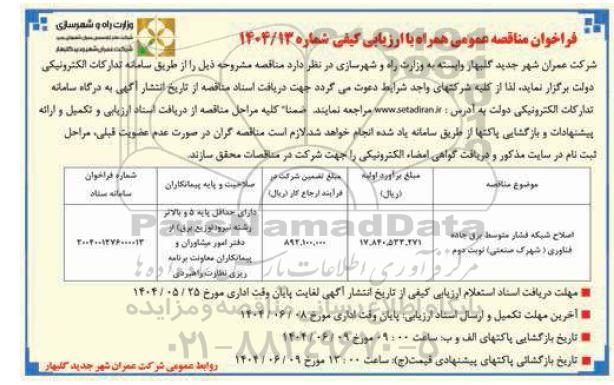 وزارت راه و شهرسازی
شرکت عمران شهر جدید گلبهار
فراخوان مناقصه عمومی همراه با ارزیابی کیفی شماره ۱۴۰۴/۱۳
شرکت عمران شهر جدید گلبهار وابسته به وزارت راه و شهرسازی در نظر دارد مناقصه مشروحه ذیل را از طریق سامانه تدارکات الکترونیکی
دولت برگزار نماید، لذا از کلیه شرکتهای واجد شرایط دعوت می گردد جهت دریافت اسناد مناقصه از تاریخ انتشار آگهی به درگاه سامانه
تدارکات الکترونیکی دولت به آدرس : www.setadiran.ir مراجعه نمایند. ضمنا" کلیه مراحل مناقصه از دریافت اسناد ارزیابی و تکمیل و ارائه
پیشنهادات و بازگشایی پاکتها از طریق سامانه یاد شده انجام خواهد شد.لازم است مناقصه گران در صورت عدم عضویت قبلی، مراحل
ثبت نام در سایت مذکور و دریافت گواهی امضاء الکترونیکی را جهت شرکت در مناقصات محقق سازند.
موضوع مناقصه
مبلغ برآورد اولیه
(ریال)
مبلغ تضمین شرکت در
فرآیند ارجاع کار (ریال)
صلاحیت و پایه پیمانکاران
شماره فراخوان
سامانه ستاد
اصلاح شبکه فشار متوسط برق جاده
فناوری ( شهرک صنعتی) نوبت دوم
۱۷.۸۴۰.۵۳۳.۲۷۱
۸۹۲.۱۰۰.۰۰۰
دارای حداقل پایه ۵ و بالاتر
رشته نیرو(توزیع برق) از
دفتر امور مشاوران و
پیمانکاران معاونت برنامه
ریزی نظارت راهبردی
۲۰۰۴۰۰۱۲۷۶۰۰۰۰۱۳
ParsNamadData
مهلت دریافت اسناد استعلام ارزیابی کیفی از تاریخ انتشار آگهی لغایت پایان وقت اداری مورخ ۲۵ / ۰۵ / ۱۴۰۴
آخرین مهلت تکمیل و ارسال اسناد ارزیابی: پایان وقت اداری مورخ ۰۸ / ۰۶ / ۱۴۰۴
تاریخ بازگشایی پاکتهای الف و ب: ساعت ۰۰ : ۰۹ مورخ ۰۹ / ۰۶ / ۱۴۰۴
تاریخ بازگشائی پاکتهای پیشنهادی قیمت(ج): ساعت ۰۰ : ۱۳ مورخ ۰۹ / ۰۶ / ۱۴۰۴
روابط عمومی شرکت عمران شهر جدید گلبهار